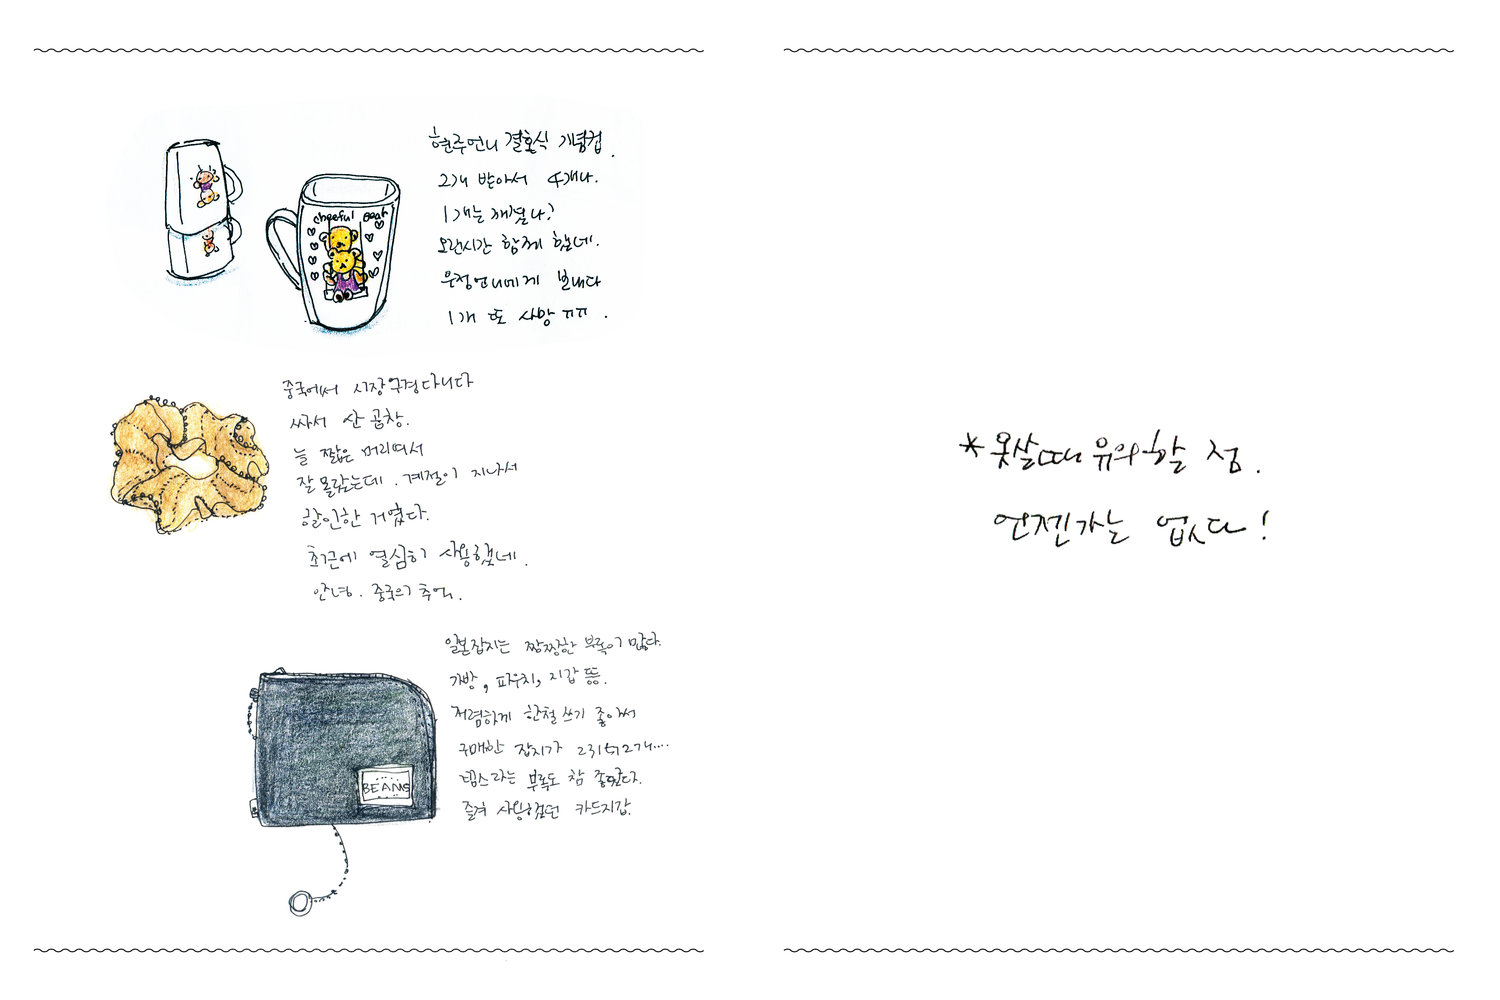 현주언니 결혼식 기념컵.
2개 받아서 4개나.
1개는 깨졌나?
오랜시간 함께 했네.
우정언니에게 보내다
1개 또 사망 ㅠㅠ.
cheerful Bear
중국에서 시장구경다니다
싸서 산 곱창.
늘 짧은 머리여서
잘 몰랐는데. 계절이 지나서
할인한 거였다.
최근에 열심히 사용했네.
안녕. 중국의 추억.
일본잡지는 짱짱한 부록이 많다.
가방, 파우치, 지갑 등.
저렴하게 한철 쓰기 좋아서
구매한 잡지가
빔스라는 부록도 참 좋았다.
즐겨 사용했던 카드지갑.
BEAMS
*옷살때 유의할 점.
언젠가는 없다!